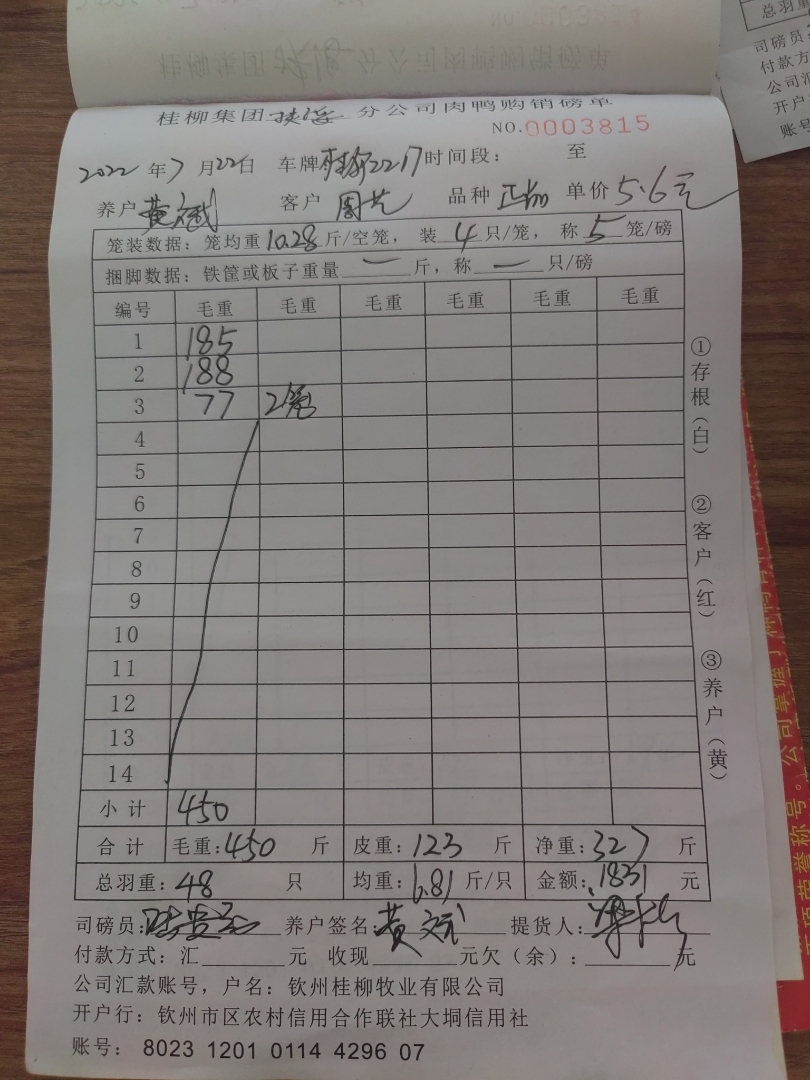 桂柳集团 分公司肉鸭购销磅单
NO.0003815
2022年7月22日 车牌 2217 时间段： 至
养户 黄文斌 客户 周艺 品种 单价 5.6元
笼装数据：笼均重10.28斤/空笼，装4只/笼，称5笼/磅
捆脚数据：铁筐或板子重量一斤，称一只/磅
编号 毛重 毛重 毛重 毛重 毛重 毛重
1 185
2 188
3 77 2笼
4
5
6
7
8
9
10
11
12
13
14
小计 450
合计 毛重：450斤 皮重：123斤 净重：327斤
总羽重：48只 均重：6.81斤/只 金额：1831元
司磅员： 养户签名：黄文斌 提货人：
付款方式：汇 元 收现 元欠（余）： 元
公司汇款账号，户名：钦州桂柳牧业有限公司
开户行：钦州市区农村信用合作联社大垌信用社
账号：8023 1201 0114 4296 07
①存根（白）
②客户（红）
③养户（黄）
总羽重
司磅员：
付款方
公司汇
开户
账号